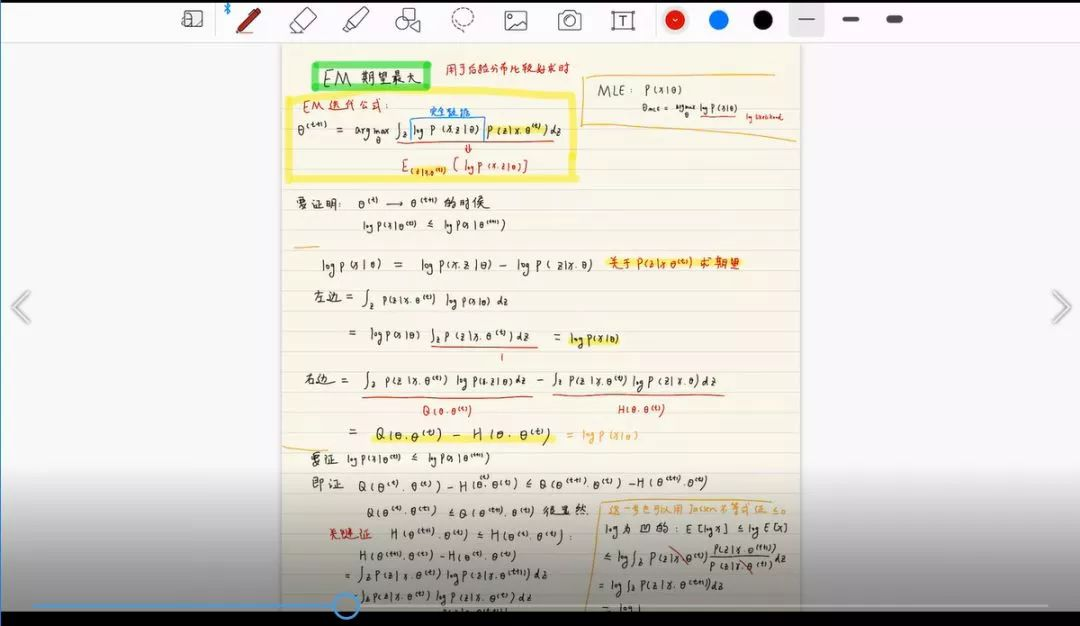 EM 期望最大 用于后验分布比较好求时
EM 迭代公式:
完全数据
θ^(t+1) = argmax_θ ∫_z log P(x.z|θ) P(z|x.θ^(t)) dz
E_(z|x.θ^(t)) [log P(x.z|θ)]
MLE: P(x|θ)
θ_MLE = argmax_θ log P(x|θ)
log likelihood
要证明: θ^(t) → θ^(t+1) 的时候
log P(x|θ^(t)) ≤ log P(x|θ^(t+1))
log P(x|θ) = log P(x.z|θ) - log P(z|x.θ) 关于 P(z|x θ^(t)) 求期望
左边 = ∫_z P(z|x.θ^(t)) log P(x|θ) dz
= log P(x|θ) ∫_z P(z|x.θ^(t)) dz = log P(x|θ)
1
右边 = ∫_z P(z|x.θ^(t)) log P(x.z|θ) dz - ∫_z P(z|x.θ^(t)) log P(z|x.θ) dz
Q(θ.θ^(t)) H(θ.θ^(t))
= Q(θ.θ^(t)) - H(θ.θ^(t)) = log P(x|θ)
要证 log P(x|θ^(t)) ≤ log P(x|θ^(t+1))
即证 Q(θ^(t).θ^(t)) - H(θ^(t).θ^(t)) ≤ Q(θ^(t+1).θ^(t)) - H(θ^(t+1).θ^(t))
Q(θ^(t).θ^(t)) ≤ Q(θ^(t+1).θ^(t)) 很显然.
关键证 H(θ^(t+1).θ^(t)) ≤ H(θ^(t).θ^(t)):
H(θ^(t+1).θ^(t)) - H(θ^(t).θ^(t))
= ∫_z P(z|x.θ^(t)) log P(z|x.θ^(t+1)) dz
- ∫_z P(z|x.θ^(t)) log P(z|x.θ^(t)) dz
这一步也可以用 Jensen 不等式证 ≤0
log为凹的: E[log x] ≤ log E[x]
≤ log ∫_z P(z|x.θ^(t)) P(z|x.θ^(t+1)) / P(z|x.θ^(t)) dz
= log ∫_z P(z|x.θ^(t+1)) dz
= log 1